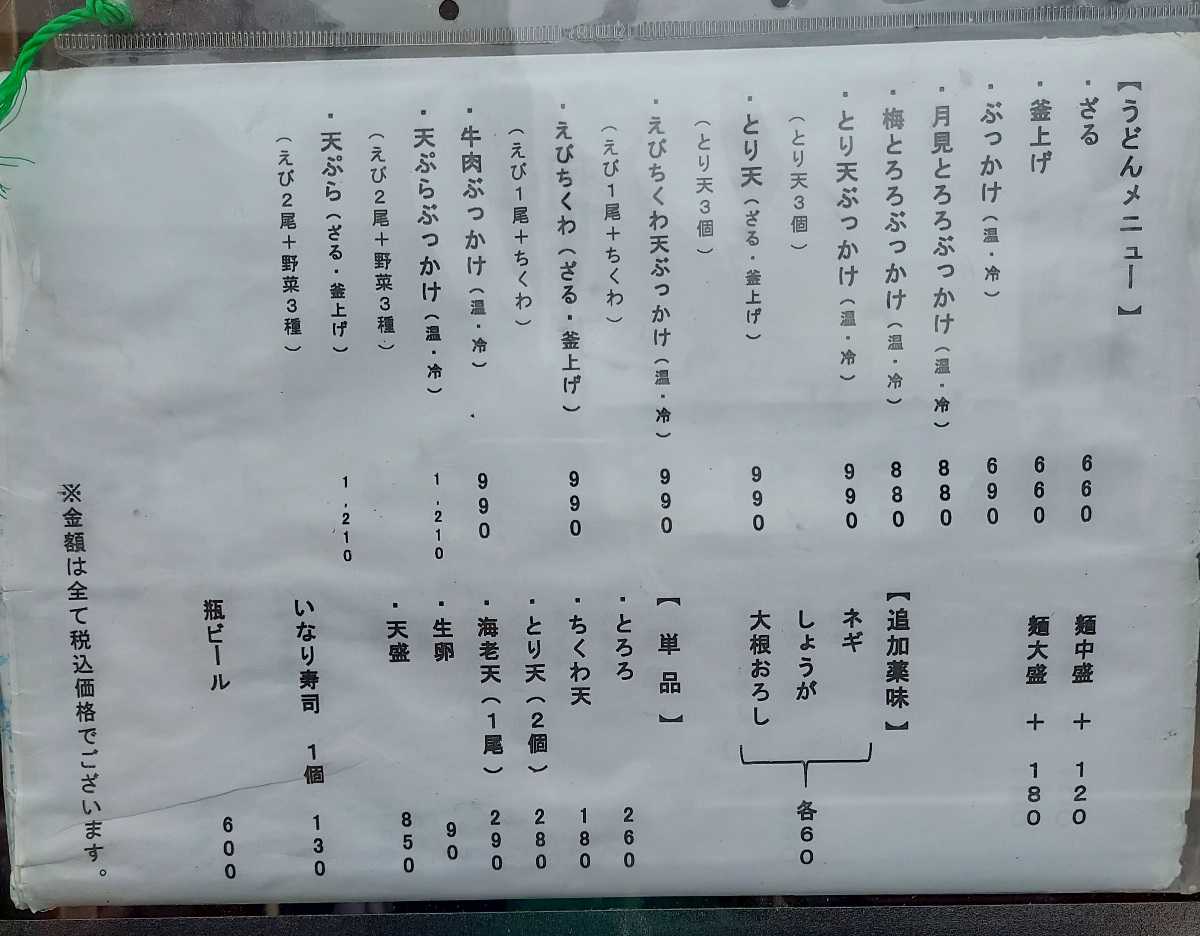 【うどんメニュー】
・ざる 660
・釜上げ 660
・ぶっかけ（温・冷） 690
・月見とろろぶっかけ（温・冷） 880
・梅とろろぶっかけ（温・冷） 880
・とり天ぶっかけ（温・冷） 990
（とり天3個）
・とり天（ざる・釜上げ） 990
（とり天3個）
・えびちくわ天ぶっかけ（温・冷） 990
（えび1尾＋ちくわ）
・えびちくわ（ざる・釜上げ） 990
（えび1尾＋ちくわ）
・牛肉ぶっかけ（温・冷） 990
・天ぷらぶっかけ（温・冷） 1,210
（えび2尾＋野菜3種）
・天ぷら（ざる・釜上げ） 1,210
（えび2尾＋野菜3種）
麺中盛 ＋ 120
麺大盛 ＋ 180
【追加薬味】
ネギ
しょうが
大根おろし
各60
【単品】
・とろろ 260
・ちくわ天 180
・とり天（2個） 280
・海老天（1尾） 290
・生卵 90
・天盛 850
いなり寿司 1個 130
瓶ビール 600
※金額は全て税込価格でございます。